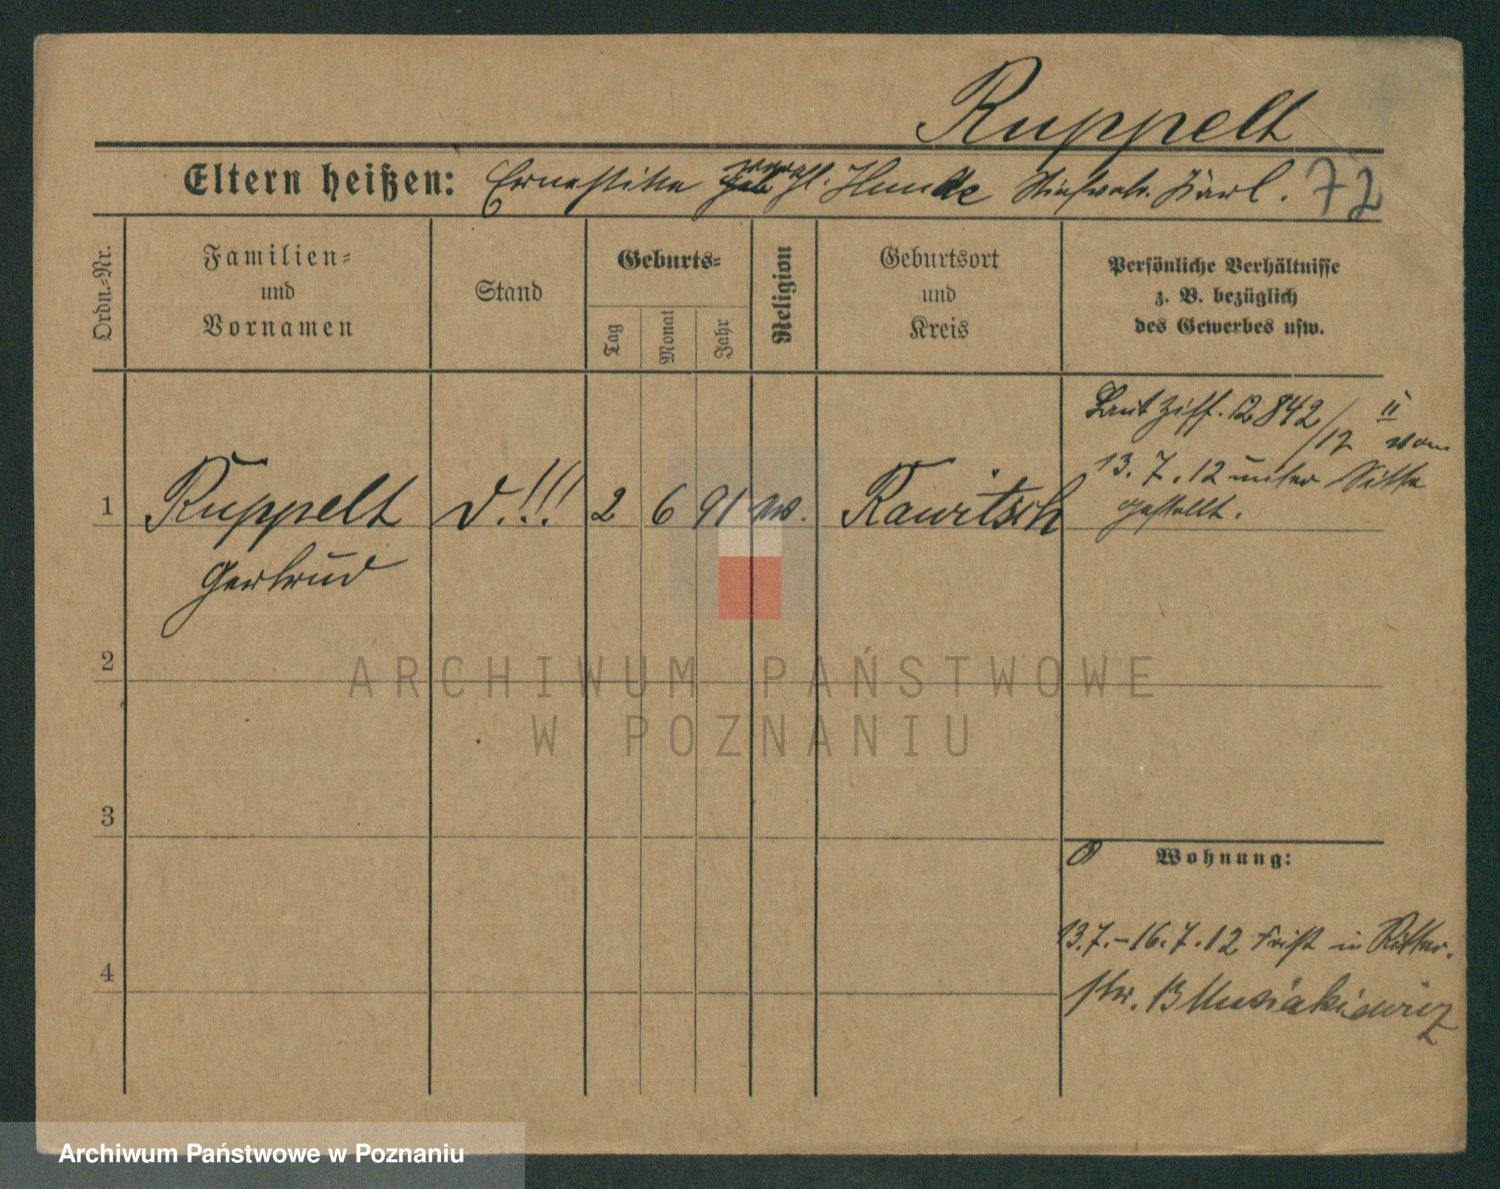 Ruppelt
Eltern heißen: Ernestine Hencke Karl. 72
Ordn.-Nr.
Familien-
und
Vornamen
Stand
Geburts-
Tag
Monat
Jahr
Religion
Geburtsort
und
Kreis
Persönliche Verhältnisse
z. B. bezüglich
des Gewerbes usw.
Laut Ziff. 12842/12 II vom
13. 7. 12 unter Sitte
gestellt.
1 Ruppelt d.!!! 2 6 91 Rawitsch
Gertrud
2
3
4
Wohnung:
13.7.-16.7.12 Frist in Ritter-
str. 13
ARCHIWUM PAŃSTWOWE
W POZNANIU
Archiwum Państwowe w Poznaniu